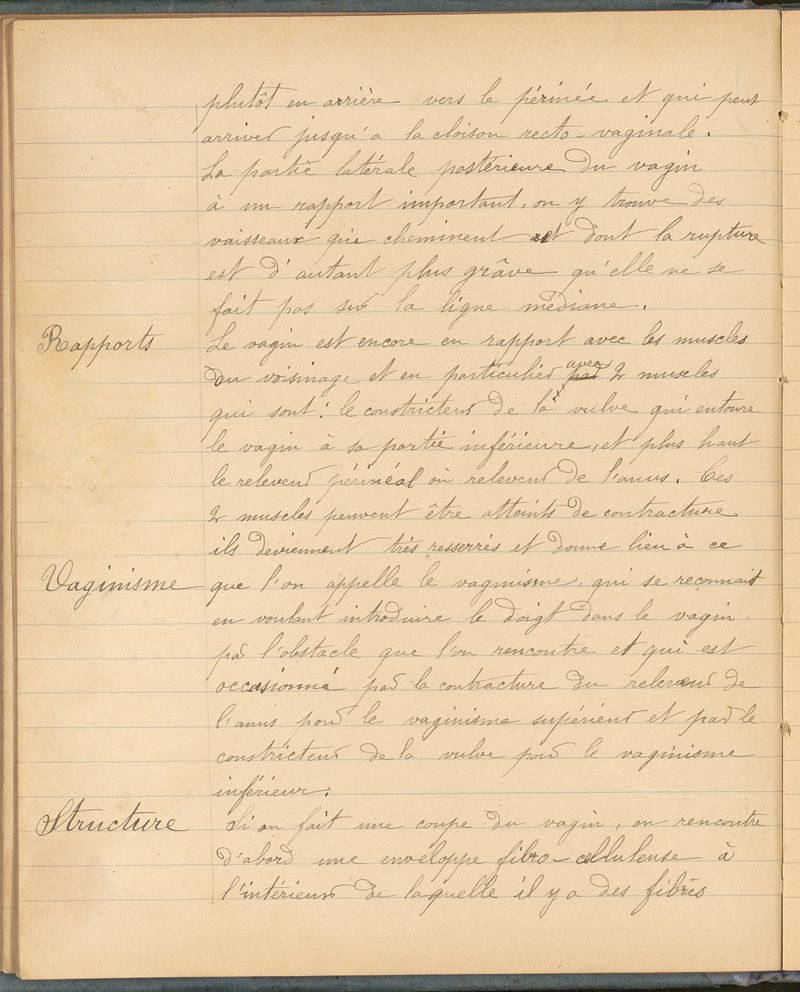 plutôt en arrière vers le périnée et qui peut
arriver jusqu'a la cloison recto-vaginale.
La partie latérale postérieure du vagin
à un rapport important, on y trouve des
vaisseaux qui cheminent et dont la rupture
est d'autant plus grâve qu'elle ne se
fait pas sur la ligne mediane.
Rapports Le vagin est encore en rapport avec les muscles
du voisinage et en particulier par avec 2 muscles
qui sont: le constricteur de la vulve qui entoure
le vagin à sa partie inférieure, et plus haut
le releveur périnéal où releveur de l'anus. Ces
2 muscles peuvent être atteints de contracture
ils deviennent très resserrés et donne lieu à ce
Vaginisme que l'on appelle le vaginisme, qui se reconnait
en voulant introduire le doigt dans le vagin
par l'obstacle que l'on rencontre et qui est
occasionné par la contracture du releveur de
l'anus pour le vaginisme supérieur et par le
constricteur de la vulve pour le vaginisme
inférieur.
Structure Si on fait une coupe du vagin, on rencontre
d'abord une enveloppe fibro-celluleuse à
l'intérieur de laquelle il y a des fibres